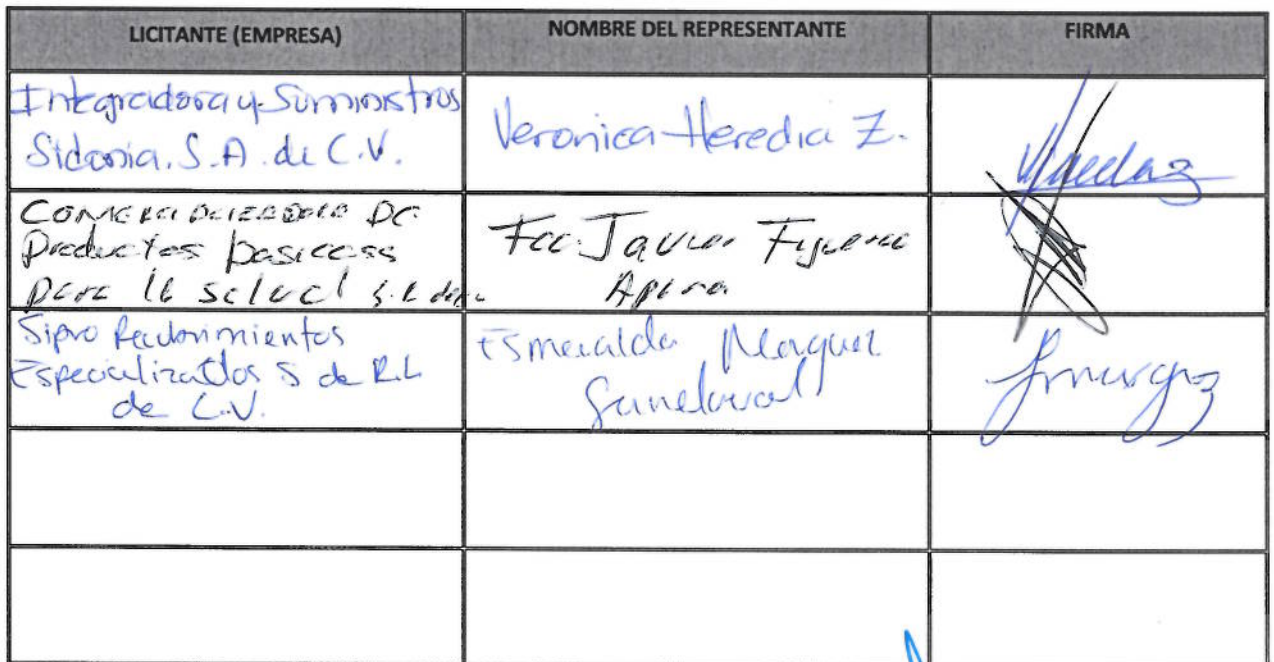 LICITANTE (EMPRESA)
NOMBRE DEL REPRESENTANTE
FIRMA
Integradora y Suministros
Sidonia. S.A. de C.V.
Veronica Heredia Z.
COMERCIALIZADORA DE
Productos basicoss
para la salud S. R de
Fco. Javier Figueroa
Sipro Recubrimientos
Especializados S de R.L
de C.V.
Esmeralda Marquez
Sandoval